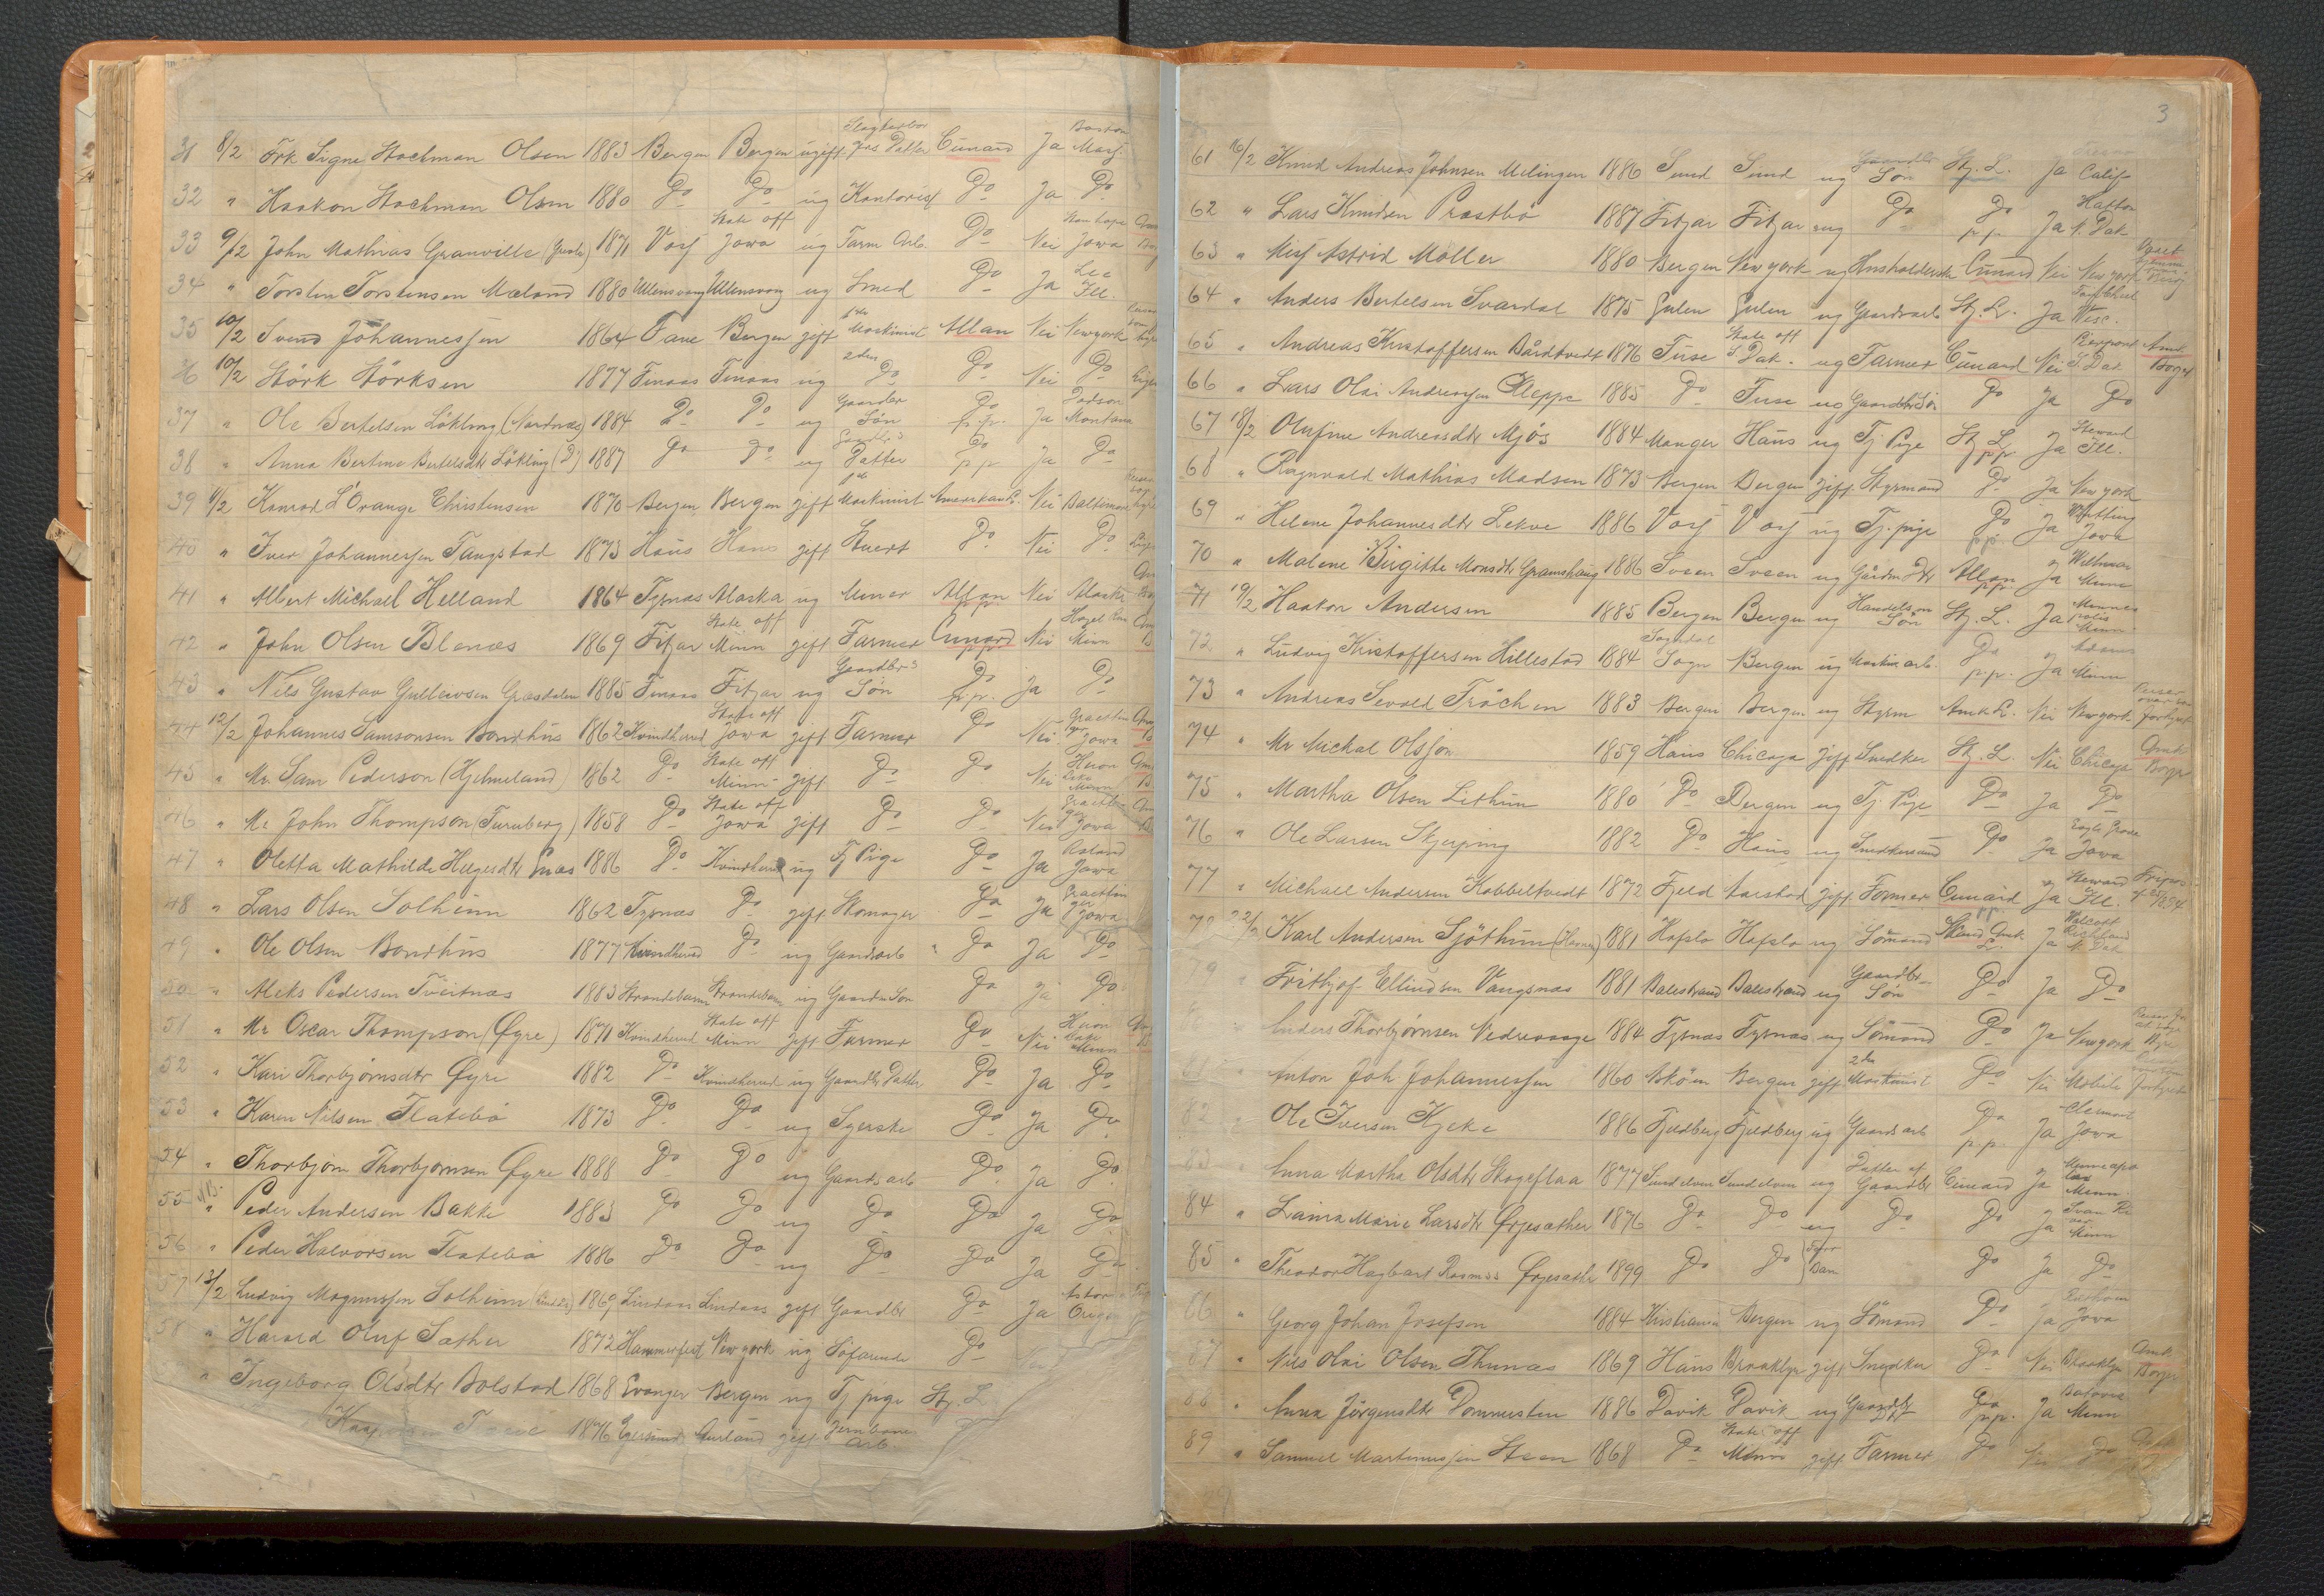 31 8/2 Frk Signe Stockman Olsen 1883 Bergen Bergen ugift Datter Cunard Ja Boston Mass.
32 " Haakon Stockman Olsen 1880 Do Do ug Kontorist Do Ja Do
33 9/2 John Mathias Granville 1871 Voss State off Jowa ug Farm Arb. Do Nei Stanhope Jowa
34 " Torsten Torstensen Mæland 1880 Ullensvang Ullensvang ug Smed Do Ja Lee Ill.
35 10/2 Svend Johannessen 1864 Fane Bergen gift 1ste Maskinist Allan Nei Newyork
36 10/2 Störk Störksen 1877 Finaas Finaas ug 2den Do Do Nei Do
37 " Ole Bertelsen Lökling (Nordnæs) 1884 Do Do ug Gaardbr Sön Do p.p. Ja Dodson Montana
38 " Anna Bertine Bertelsdtr Lökling (Do) 1887 Do Do ug Gaardbr s Datter Do p.p. Ja Do
39 11/2 Konrad L'Orange Christensen 1870 Bergen Bergen gift 1ste Maskinist Amerikansk L. Nei Baltimore
40 " Iver Johannessen Tangstad 1873 Haus Haus gift Stuert Do Nei Do
41 " Albert Michael Helland 1864 Tysnæs Alaska ug Miner Allan p.p. Nei Alaska
42 " John Olsen Blænæs 1869 Fitjar State off Minn gift Farmer Cunard p.p. Nei Hazel Run Minn
43 " Nils Gustav Gulleivsen Græsdalen 1885 Finaas Fitjar ug Gaardbr s Sön Do p.p. Ja Do
44 12/2 Johannes Samsonsen Bondhus 1862 Kvindherred State off Jowa gift Farmer Do Nei Graettinger Jowa
45 " Mr. Sam Pederson (Hjelmeland) 1862 Do State off Minn gift Do Do Nei Heron Lake Minn
46 " Mr John Thompson (Furuberg) 1858 Do State off Jowa gift Do Do Nei Graettinger Jowa
47 " Oletta Mathilde Helgesdtr Enæs 1886 Do Kvindherred ug Tj Pige Do Ja Roland Jowa
48 " Lars Olsen Solheim 1862 Tysnæs Do gift Skomager Do Ja Graettinger Jowa
49 " Ole Olsen Bondhus 1877 Kvindherred Do ug Gaardsarb Do Ja Do
50 " Aleks Pedersen Tveitnæs 1883 Strandebarm Strandebarm ug Gaardm Son Do Ja Do
51 " Mr Oscar Thompson (Øyre) 1871 Kvindherred State off Minn gift Farmer Do Nei Heron Lake Minn
52 " Kari Thorbjørnsdtr Øyre 1882 Do Kvindherred ug Gaardbr Datter Do Ja Do
53 " Karen Nilsen Flatebö 1873 Do Do ug Syerske Do Ja Do
54 " Thorbjørn Thorbjørnsen Øyre 1888 Do Do ug Gaardsarb Do Ja Do
55 NB. " Peder Andersen Bakke 1883 Do Do ug Do Do Ja Do
56 " Peder Halvorsen Flatebö 1886 Do Do ug Do Do Ja Do
57 13/2 Ludvig Magnussen Solheim 1869 Lindaas Lindaas gift Gaardbr Do Ja Astoria Oregon
58 " Harald Oluf Sæther 1872 Hammerfest New york ug Söfarende Do
" Ingeborg Olsdtr Bolstad 1868 Evanger Bergen ug Tj pige Stj. L
1876 Gersund Aurland gift Jernbane arb.
3
61 16/2 Knud Andreas Johnsen Milingen 1886 Sund Sund ug Gaardbr Sön Stj. L. Ja Calif
62 " Lars Knudsen Præstbö 1887 Fitjar Fitjar ug Do Do p.p. Ja Hatton N. Dak
63 " Miss Astrid Möller 1880 Bergen New york ug Husholderske Cunard Nei New york
64 " Anders Bertelsen Svardal 1875 Gulen Gulen ug Gaardsarb Stj. L. Ja Wisc.
65 " Andreas Kristoffersen Bårdtvedt 1876 Fuse State off S. Dak. ug Farmer Cunard Nei Pierpont S. Dak Amk Borger
66 " Lars Olai Andreassen Kleppe 1885 Do Fuse ug Gaardbr Sön Do Ja Do
67 18/2 Olufine Andreasdtr Mjös 1884 Manger Haus ug Tj Pige Stj L p.p. Ja Steward Ill.
68 " Ragnvald Mathias Madsen 1873 Bergen Bergen gift Styrmand Do Ja New york
69 " Helene Johannesdtr Lekve 1886 Voss Voss ug Tj. pige Do p.p. Ja Whitting Jowa
70 " Malene Birgitte Monsdtr Gramshaug 1886 Sveen Sveen ug Gårdm Dtr Allan p.p. Ja Willmar Minn
71 19/2 Haakon Andersen 1885 Bergen Bergen ug Handelsm Sön Stj. L. Ja Minneapolis Minn.
72 " Ludvig Kristoffersen Hillestad 1884 Sogndal Sogn Bergen ug Maskin arb. Do p.p. Ja Adams Minn
73 " Andreas Sevald Tråchen 1883 Bergen Bergen ug Styrm Amk L. Nei Newyork
74 " Mr Michal Olsson 1859 Haus Chicago gift Snedker Stj. L. Nei Chicago Amk Borger
75 " Martha Olsen Lethun 1880 Do Bergen ug Tj. Pige Do Ja Do
76 " Ole Larsen Skjerping 1882 Do Haus ug Snedkersvend Do Ja Eagle Grove Jowa
77 " Michael Andersen Kobbeltvedt 1872 Fjeld Aarstad gift Former Cunard p.p. Ja Steward Ill.
78 22/2 Karl Andersen Sjøthun 1881 Hafslo Hafslo ug Sömand Skand. Amk. L. Ja Walcott Richland N. Dak
79 " Frithjof Ellindsen Vangsnæs 1881 Balestrand Balestrand ug Gaardbr Sön Do Ja Do
" Anders Thorbjørnsen Nedrevaage 1884 Tysnæs Tysnæs ug Sömand Do Ja Newyork
81 " Anton Joh Johannessen 1860 Askøen Bergen gift 2den Maskinist Do Nei Mobile
82 " Ole Iversen Kjeke 1886 Fjeldberg Fjeldberg ug Gaardsarb Do p.p. Ja Clermont Jowa
83 " Anna Martha Olsdtr Skogeflaa 1877 Sundelven Sundelven ug Datter af Gaardbr Cunard Ja Minneapolis Minn
84 " Laura Marie Larsdtr Ørjesæther 1876 Do Do ug Do Do Ja Minn
85 " Theodor Hagbart Rasmus Ørjesæther 1899 Do Do Barn Do Ja Do
86 " Georg Johan Josefsen 1884 Kristiania Bergen ug Sömand Do Ja Jowa
87 " Nils Olai Olsen Thunæs 1869 Haus Brooklyn gift Snedker Do Nei Brooklyn Amk Borger
88 " Anna Jörgensdtr Dommersten 1886 Davik Davik ug Gaardbr Dtr Do p.p. Ja Minn
89 " Samuel Martinussen Steen 1868 Do State off Minn gift Farmer Do Nei Do